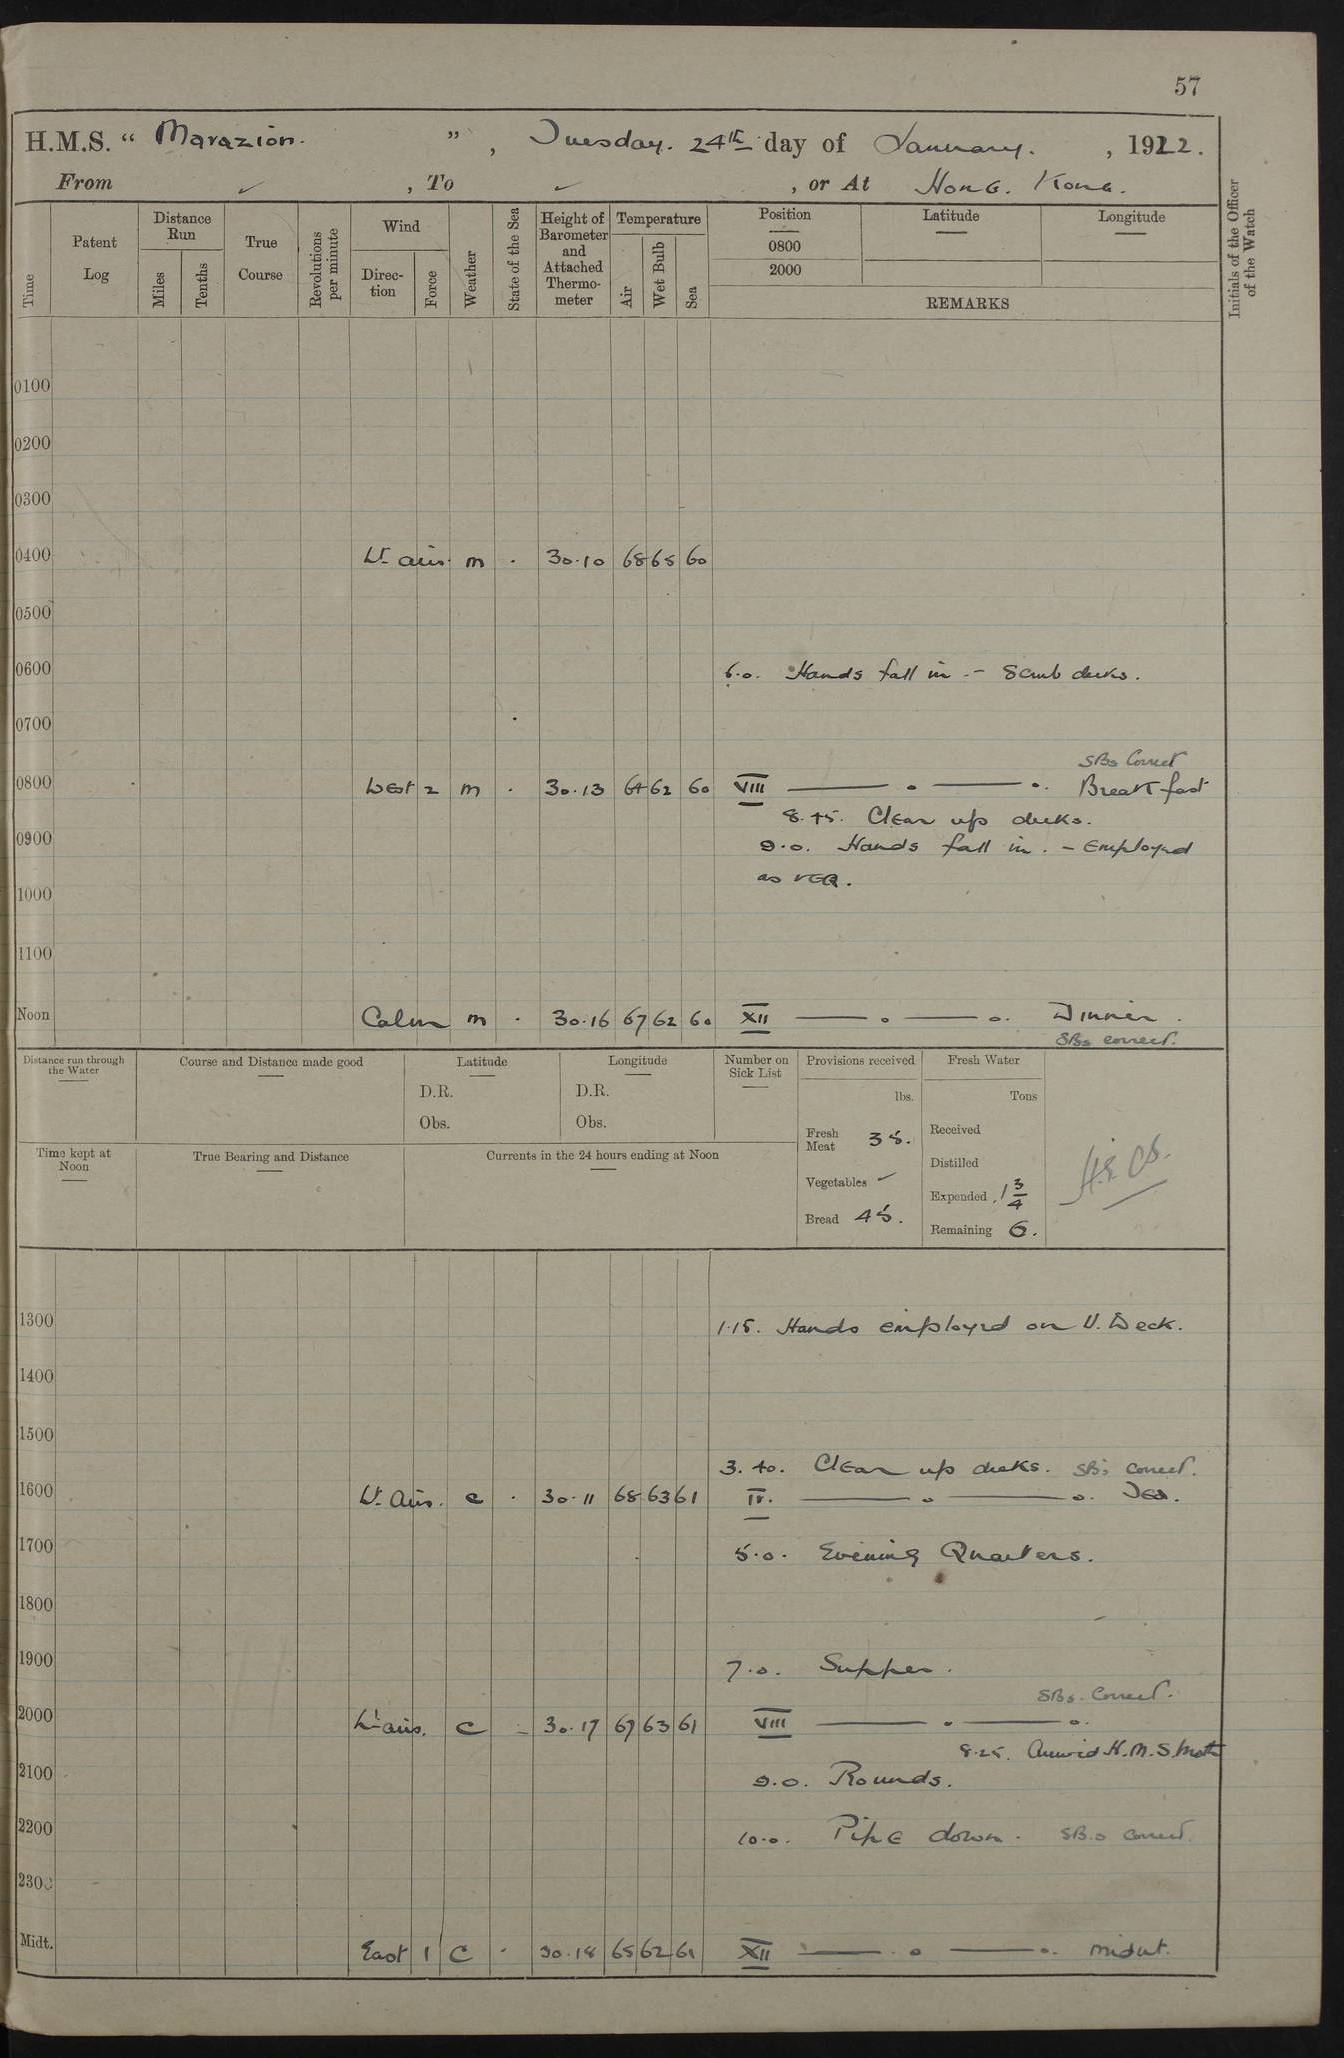 57
H.M.S. “ Marazion. ”, Tuesday. 24th day of January. , 1922.
From ✓ , To ✓ , or At Hong. Kong.
Time Patent Log Distance Run Miles Tenths True Course Revolutions per minute Wind Direc- tion Force Weather State of the Sea Height of Barometer and Attached Thermo- meter Temperature Air Wet Bulb Sea Position 0800 2000 Latitude Longitude Initials of the Officer of the Watch
REMARKS
0100
0200
0300
0400 Lt airs. m . 30.10 68 65 60
0500
0600 6.0. Hands fall in. - Scrub decks.
0700
SBs Correct
0800 West 2 m . 30.13 64 62 60 VIII ——— o ——— o. Breakfast
8.45. Clear up decks.
0900 9.0. Hands fall in. - Employed
as req.
1000
1100
Noon Calm m . 30.16 67 62 60 XII ——— o ——— o. Dinner.
SBs correct.
Distance run through the Water Course and Distance made good Latitude Longitude Number on Sick List Provisions received Fresh Water
D.R. D.R. lbs. Tons
Obs. Obs. Fresh Meat 35. Received
Time kept at Noon True Bearing and Distance Currents in the 24 hours ending at Noon Distilled
Vegetables ✓ Expended 1 3/4
Bread 45. Remaining 6.
1300 1.15. Hands employed on U. Deck.
1400
1500
3.40. Clear up decks. SBs correct.
1600 Lt Airs. c . 30.11 68 63 61 IV. ——— o ——— o. Tea.
1700 5.0. Evening Quarters.
1800
1900 7.0. Supper.
SBs. Correct.
2000 Lt airs. c - 30.17 67 63 61 VIII ——— o ——— o.
8.25. Arrived H.M.S. Moth
2100 9.0. Rounds.
2200 10.0. Pipe down. SB.s Correct.
2300
Midt. East 1 C . 30.18 65 62 61 XII ——— o ——— o. midnt.